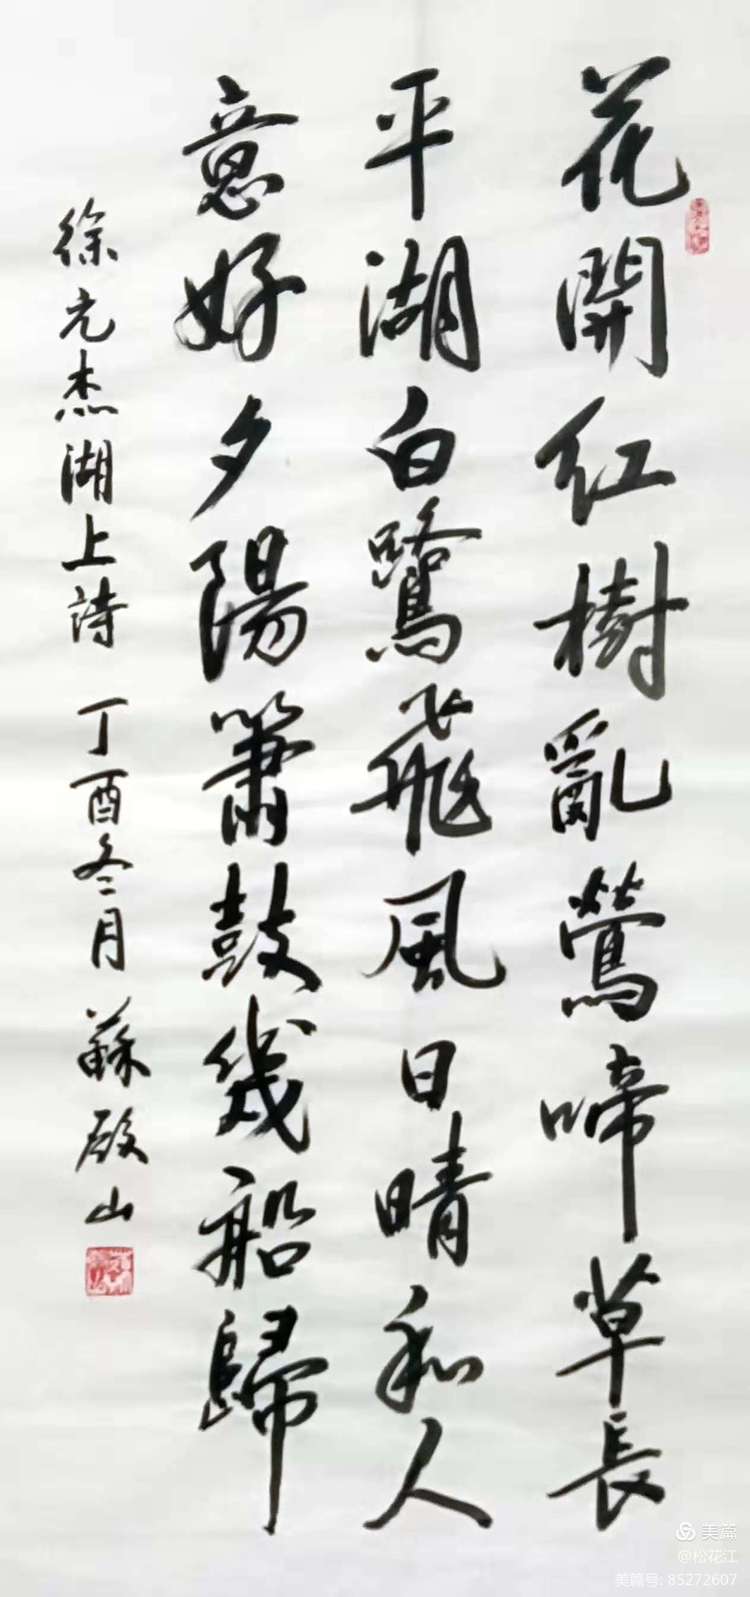 花開紅樹亂鶯啼草長
平湖白鷺飛風日晴和人
意好夕陽簫鼓幾船歸
徐元杰湖上詩 丁酉冬月 蘇殿山
美篇
@松花江
美篇号: 85272607